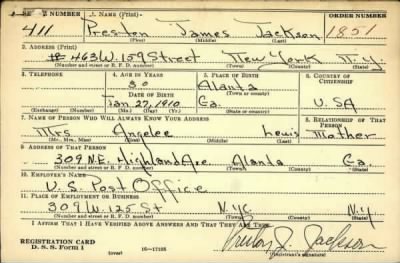 SERIAL NUMBER 1. NAME (Print) ORDER NUMBER
411 Preston James Jackson 1851
(First) (Middle) (Last)
2. ADDRESS (Print)
# 463 W. 159 Street New York N.Y.
(Number and street or R. F. D. number) (Town) (County) (State)
3. TELEPHONE 4. AGE IN YEARS 5. PLACE OF BIRTH 6. COUNTRY OF CITIZENSHIP
30 Alanta
DATE OF BIRTH (Town or county)
Jan. 27, 1910 Ga. U.S.A
(Exchange) (Number) (Mo.) (Day) (Yr.) (State or country)
7. NAME OF PERSON WHO WILL ALWAYS KNOW YOUR ADDRESS 8. RELATIONSHIP OF THAT PERSON
Mrs Angelee Lewis Mother
(Mr., Mrs., Miss) (First) (Middle) (Last)
9. ADDRESS OF THAT PERSON
309 N.E. Highland Ave Alanda Ga.
(Number and street or R. F. D. number) (Town) (County) (State)
10. EMPLOYER'S NAME
U.S. Post Office
11. PLACE OF EMPLOYMENT OR BUSINESS
309 W. 125 St N.Y.C N.Y
(Number and street or R. F. D. number) (Town) (County) (State)
I AFFIRM THAT I HAVE VERIFIED ABOVE ANSWERS AND THAT THEY ARE TRUE.
REGISTRATION CARD
D. S. S. Form 1 (over) 16—17105
Preston J. Jackson
(Registrant's signature)